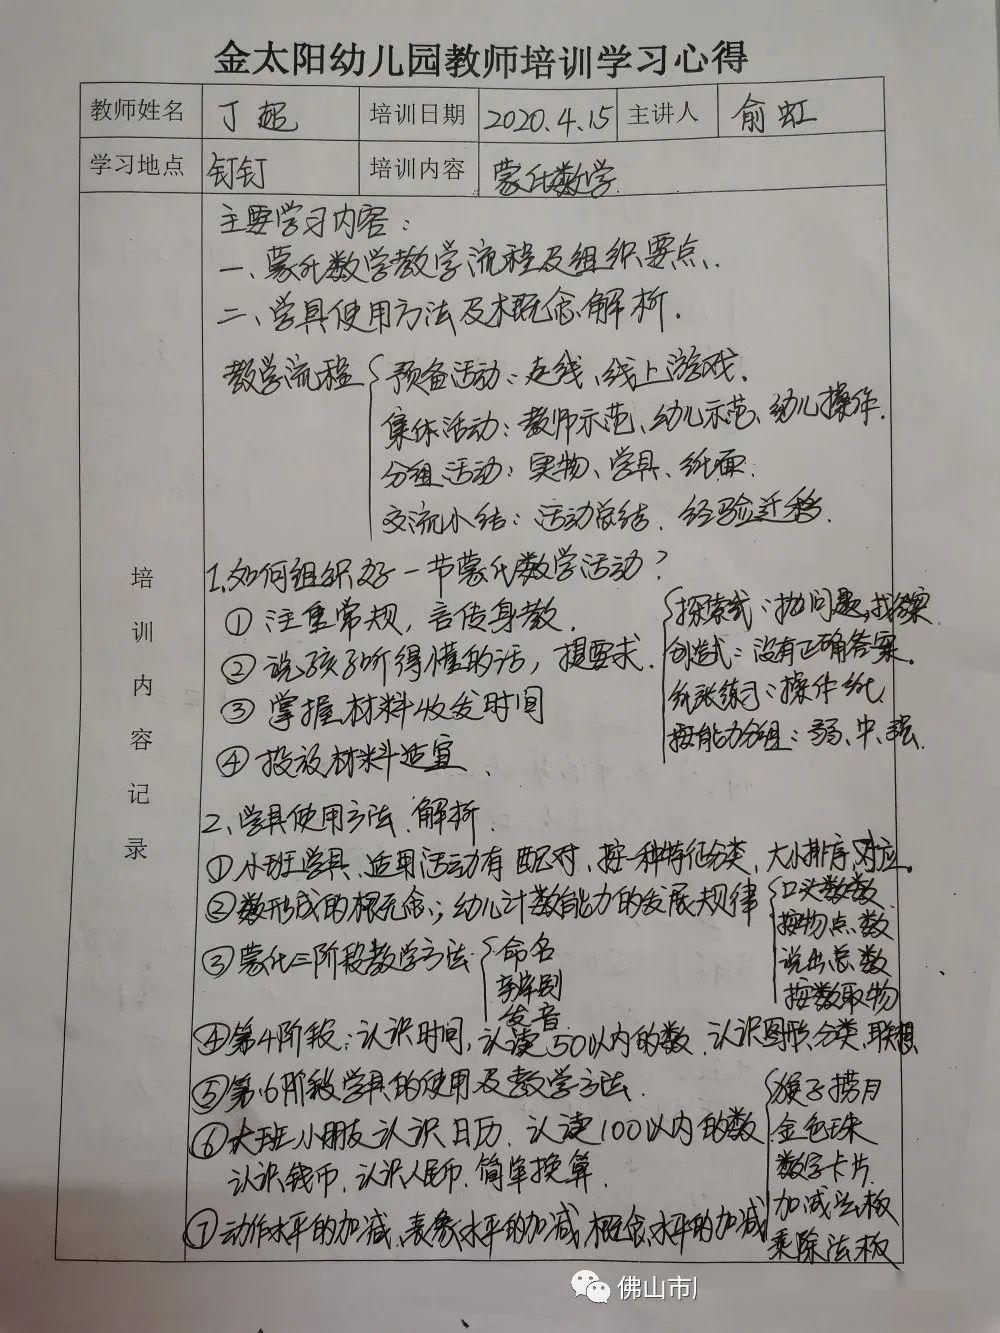 金太阳幼儿园教师培训学习心得
教师姓名 丁超 培训日期 2020.4.15 主讲人 俞虹
学习地点 钉钉 培训内容 蒙氏数学.
培训内容记录
主要学习内容:
一、蒙氏数学教学流程及组织要点.
二、学具使用方法及概念解析.
教学流程
预备活动:走线、线上游戏.
集体活动:教师示范、幼儿示范、幼儿操作.
分组活动:实物、学具、纸面.
交流小结:活动总结、经验迁移.
1.如何组织好一节蒙氏数学活动?
①注重常规,言传身教.
②说孩子听得懂的话,提要求.
③掌握材料收发时间
④投放材料适宜、
探索式:抛问题,找答案.
创造式:没有正确答案.
纸张练习:操作纸.
按能力分组:弱、中、强.
2、学具使用方法、解析.
①小班学具、适用活动有配对、按一种特征分类、大小排序、对应.
②数形成的概念;幼儿计数能力的发展规律
口头数数
按物点数
说出总数
按数取物
③蒙氏三阶段教学方法
命名
辨别
发音
④第4阶段:认识时间,认读50以内的数、认识图形、分类、联想
⑤第6阶段学具的使用及教学方法.
⑥大班小朋友认识日历、认读100以内的数
认识钱币、认识人民币、简单换算.
⑦动作水平的加减、表象水平的加减、概念水平的加减
猴子捞月
金色珠
数字卡片
加减法板
乘除法板
佛山市